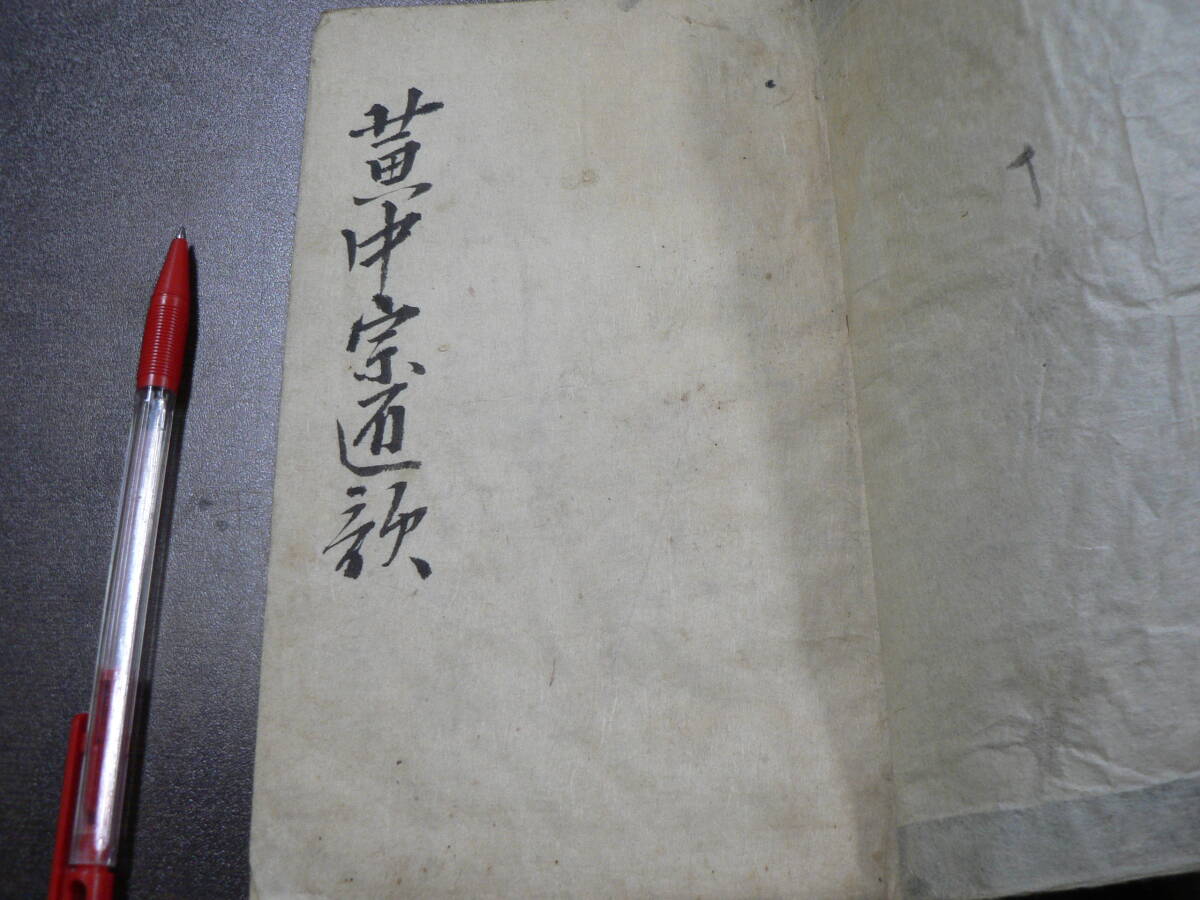 黄中宗道